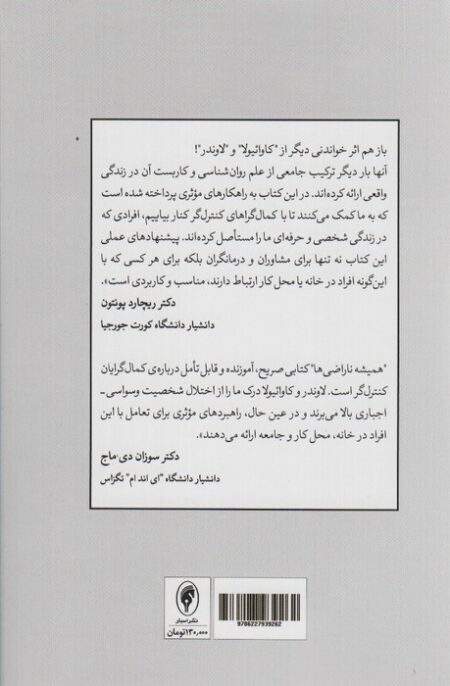 باز هم اثر خواندنی دیگر از "کاوائیولا" و "لاوندر"!
آنها بار دیگر ترکیب جامعی از علم روان‌شناسی و کاربست آن در زندگی
واقعی ارائه کرده‌اند. در این کتاب به راهکارهای مؤثری پرداخته شده است
که به ما کمک می‌کنند تا با کمال‌گراهای کنترل‌گر کنار بیاییم، افرادی که
در زندگی شخصی و حرفه‌ای ما را مستأصل کرده‌اند. پیشنهادهای عملی
این کتاب نه تنها برای مشاوران و درمانگران بلکه برای هر کسی که با
این‌گونه افراد در خانه یا محل کار ارتباط دارند، مناسب و کاربردی است».
دکتر ریچارد پونتون
دانشیار دانشگاه کورت جورجیا
"همیشه ناراضی‌ها" کتابی صریح، آموزنده و قابل تأمل درباره‌ی کمال‌گرایان
کنترل‌گر است. لاوندر و کاوائیولا درک ما را از اختلال شخصیت وسواسی-
اجباری بالا می‌برند و در عین حال، راهبردهای مؤثری برای تعامل با این
افراد در خانه، محل کار و جامعه ارائه می‌دهند».
دکتر سوزان دی-ماج
دانشیار دانشگاه "ای اند ام" تگزاس
نشر اسبار
۱۳۰,۰۰۰تومان
9786227939262